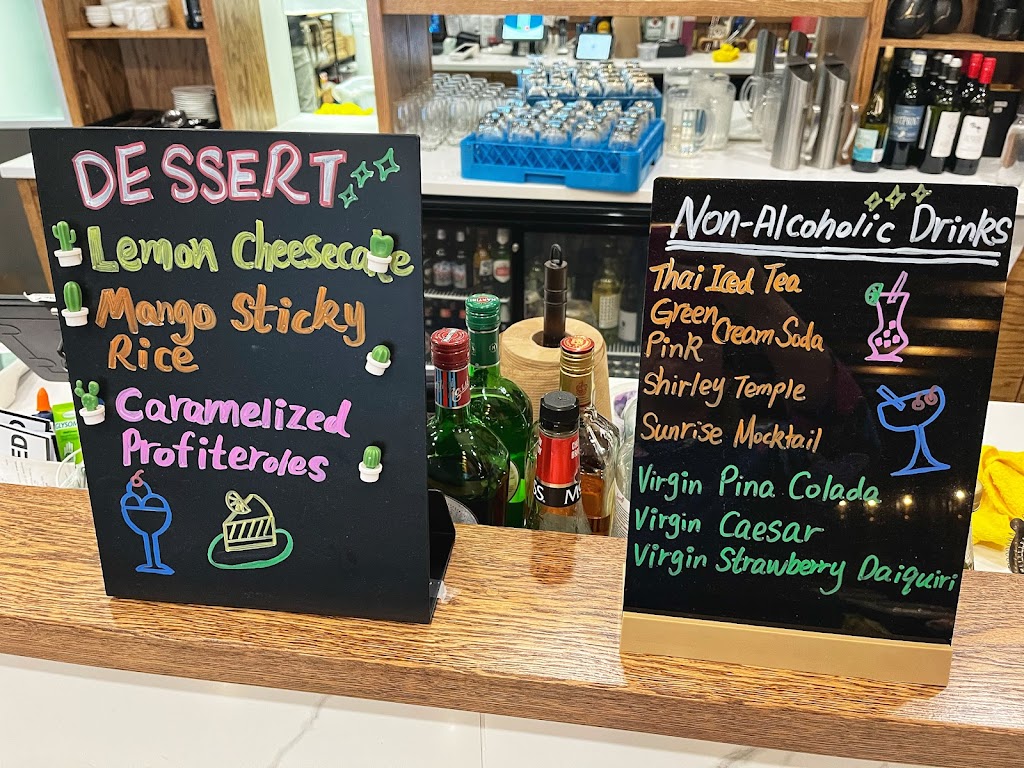 DESSERT
Lemon Cheesecake
Mango Sticky
Rice
Caramelized
Profiteroles
Non-Alcoholic Drinks
Thai Iced Tea
Green
Cream Soda
Pink
Shirley Temple
Sunrise Mocktail
Virgin Pina Colada
Virgin Caesar
Virgin Strawberry Daiquiri